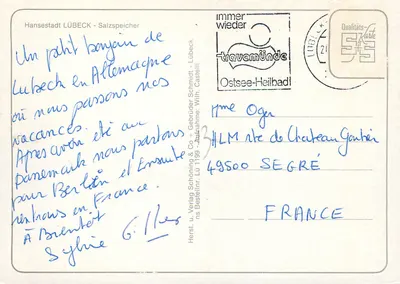 Hansestadt LÜBECK - Salzspeicher
Un petit bonjour de
Lubeck en Allemagne
où nous passons nos
vacances.
Après avoir été au
Danemark nous partons
pour Berlin et Ensuite
rentrons en France.
A Bientôt
Sylvie G.
immer
wieder
travemünde
Ostsee-Heilbad
Qualitäts
Karte
Mme Oger
HLM rte de Chateau Gontier
49500 SEGRÉ
FRANCE
Herst. u. Verlag Schöning & Co + Gebrüder Schmidt - Lübeck
Bestellnr. Lü Aufnahme: Wilh. Castelli